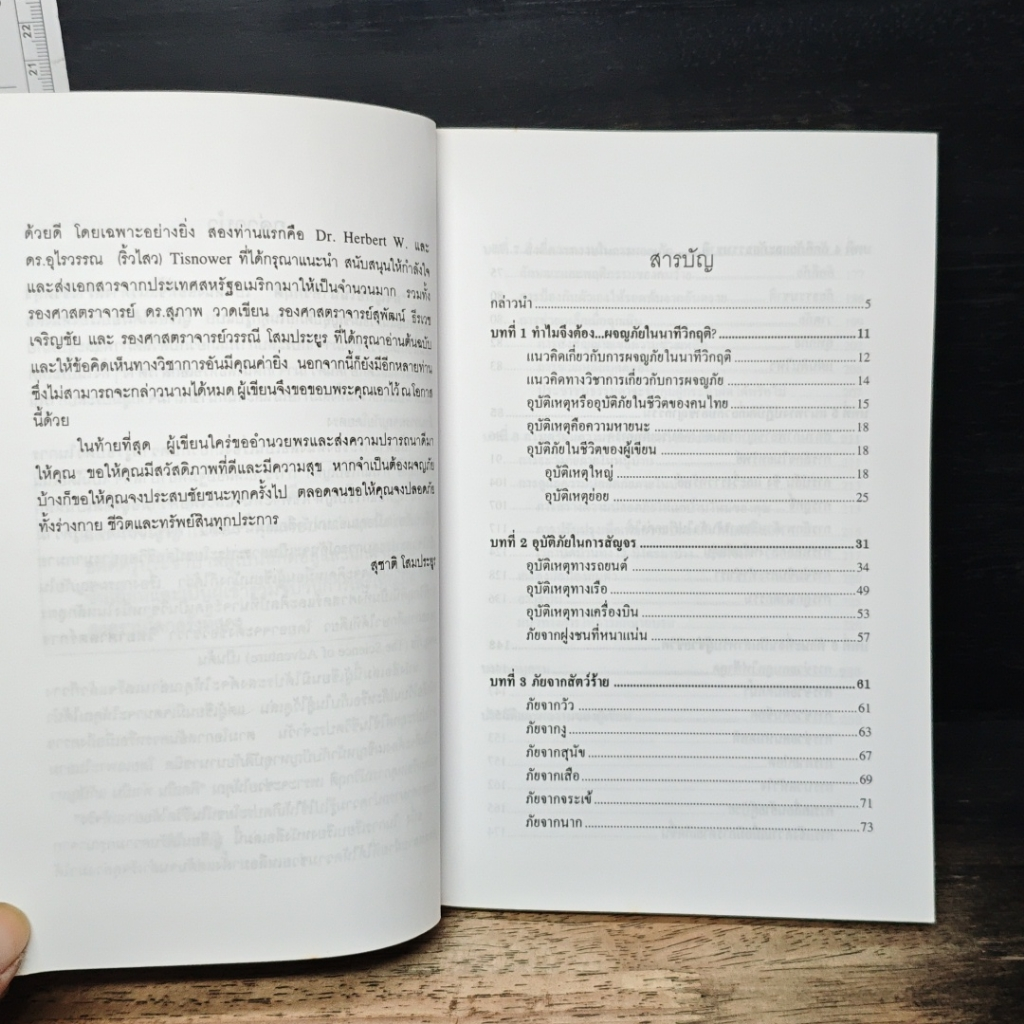 22
21
ด้วยดี โดยเฉพาะอย่างยิ่ง สองท่านแรกคือ Dr. Herbert W. และ
ดร.อุไรวรรณ (ริ้วไสว) Tisnower ที่ได้กรุณาแนะนำ สนับสนุนให้กำลังใจ
และส่งเอกสารจากประเทศสหรัฐอเมริกามาให้เป็นจำนวนมาก รวมทั้ง
รองศาสตราจารย์ ดร.สุภาพ วาดเขียน รองศาสตราจารย์สุพัฒน์ ธีรเวช
เจริญชัย และ รองศาสตราจารย์วรรณี โสมประยูร ที่ได้กรุณาอ่านต้นฉบับ
และให้ข้อคิดเห็นทางวิชาการอันมีคุณค่ายิ่ง นอกจากนี้ก็ยังมีอีกหลายท่าน
ซึ่งไม่สามารถจะกล่าวนามได้หมด ผู้เขียนจึงขอขอบพระคุณเอาไว้ ณ โอกาส
นี้ด้วย
ในท้ายที่สุด ผู้เขียนใคร่ขออำนวยพรและส่งความปรารถนาดีมา
ให้คุณ ขอให้คุณมีสวัสดิภาพที่ดีและมีความสุข หากจำเป็นต้องผจญภัย
บ้างก็ขอให้คุณจงประสบชัยชนะทุกครั้งไป ตลอดจนขอให้คุณจงปลอดภัย
ทั้งร่างกาย ชีวิตและทรัพย์สินทุกประการ
สุชาติ โสมประยูร
สารบัญ
กล่าวนำ 5
บทที่ 1 ทำไมจึงต้อง...ผจญภัยในนาทีวิกฤติ? 11
แนวคิดเกี่ยวกับการผจญภัยในนาทีวิกฤติ 12
แนวคิดทางวิชาการเกี่ยวกับการผจญภัย 14
อุบัติเหตุหรืออุบัติภัยในชีวิตของคนไทย 15
อุบัติเหตุคือความหายนะ 18
อุบัติภัยในชีวิตของผู้เขียน 18
อุบัติเหตุใหญ่ 18
อุบัติเหตุย่อย 25
บทที่ 2 อุบัติภัยในการสัญจร 31
อุบัติเหตุทางรถยนต์ 34
อุบัติเหตุทางเรือ 49
อุบัติเหตุทางเครื่องบิน 53
ภัยจากฝูงชนที่หนาแน่น 57
บทที่ 3 ภัยจากสัตว์ร้าย 61
ภัยจากวัว 61
ภัยจากงู 63
ภัยจากสุนัข 67
ภัยจากเสือ 69
ภัยจากจระเข้ 71
ภัยจากนาก 73